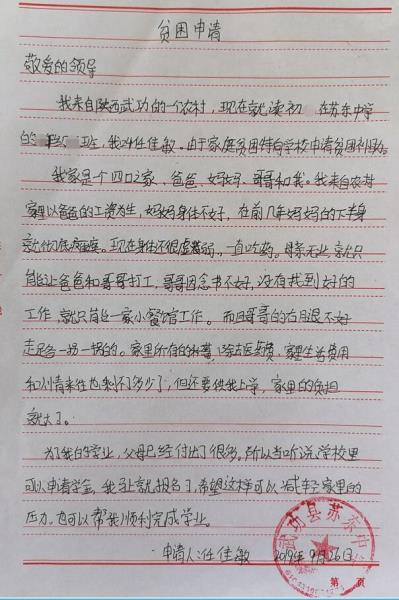 贫困申请
敬爱的领导
我来自陕西武功的一个农村,现在就读初 在苏东中学
的 班,我叫任佳敏。由于家庭贫困特向学校申请贫困补助。
我家是个四口之家,爸爸、妈妈、哥哥和我。我来自农村
家里以爸爸的工资为生,妈妈身体不好,在前几年妈妈的下身
就彻底瘫痪。现在身体还很虚弱,一直吃药。母亲无业,就只
能让爸爸和哥哥打工,哥哥因念书不好,没有找到好的
工作,就只能在一家小餐馆工作。而且哥哥的右腿不好
走路一拐一拐的。家里所有的 ,除去医药费,家里生活费用
和人情来往也剩不了多少了,但还要供我上学,家里的负担
就大了。
为了我的学业,父母已经付出了很多。所以当听说学校里
可以申请 ,我 就报名了,希望这样可以减轻家里的
压力,也可以帮我顺利完成学业。
申请人:任佳敏 2019年9月26日
武功县苏东
第 页